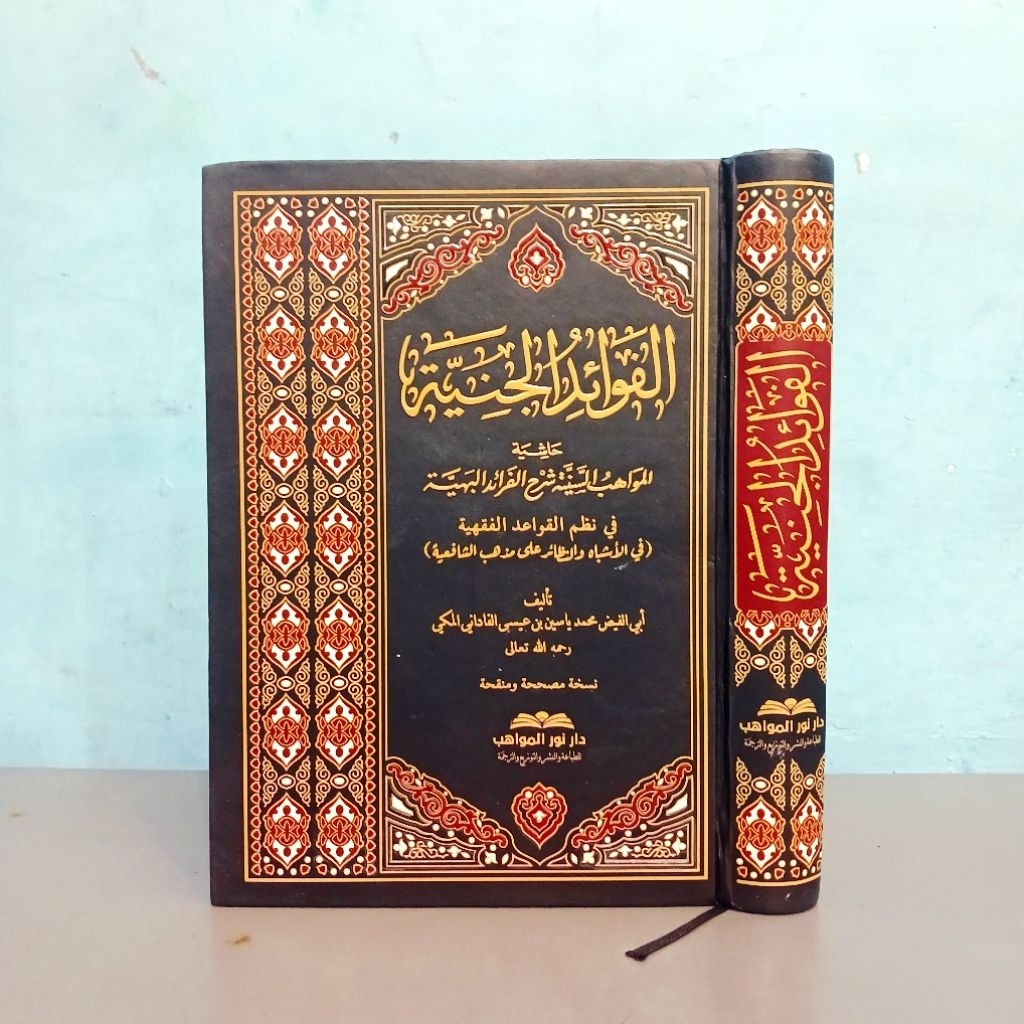 الفَوَائِدُ الجَنِيَّة
حَاشِيَة
المَوَاهِبُ السَّنِيَّة شَرْح الفَرَائد البَهيَّة
في نظم القواعد الفقهية
(في الأشباه والنظائر على مذهب الشافعية)
تأليف
أبي الفيض محمد ياسين بن عيسى الفاداني المكي
رحمه الله تعالى
نسخة مصححة ومنقحة
دار نور المواهب
للطباعة والنشر والتوزيع والترجمة
الفَوَائِدُ الجَنِيَّة
دار نور المواهب
للطباعة والنشر والتوزيع والترجمة